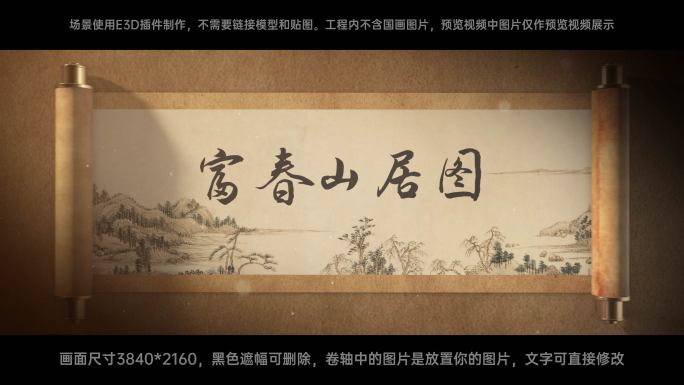 场景使用E3D插件制作，不需要链接模型和贴图。工程内不含国画图片，预览视频中图片仅作预览视频展示
富春山居图
画面尺寸3840*2160，黑色遮幅可删除，卷轴中的图片是放置你的图片，文字可直接修改